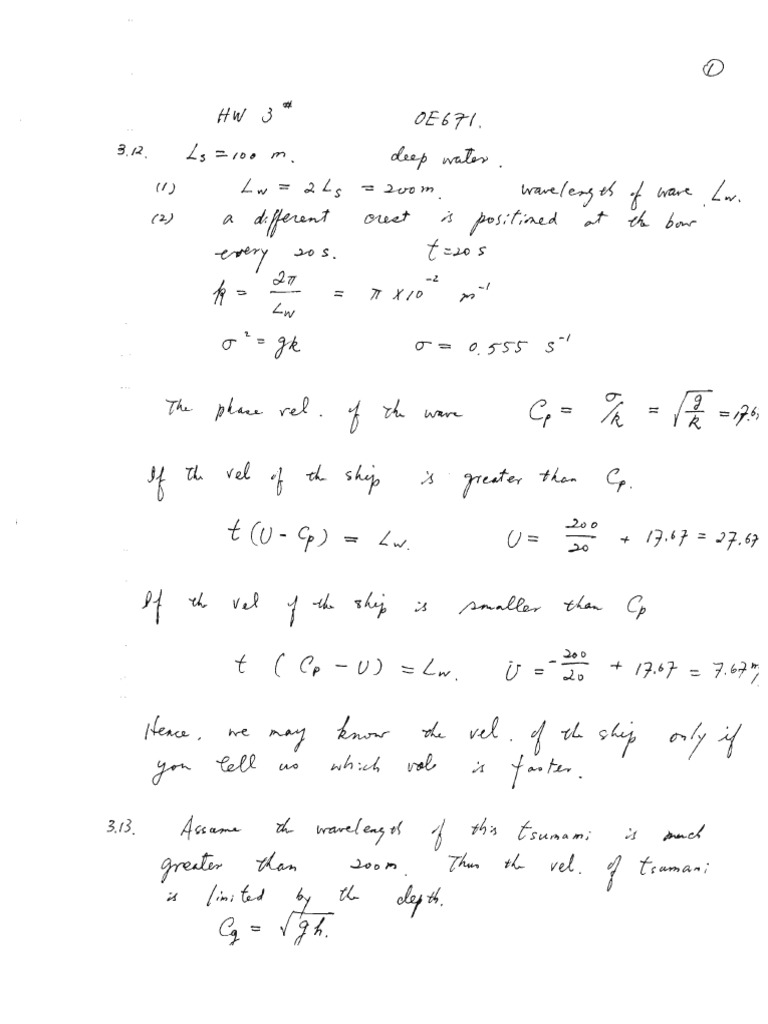 ①
HW 3 # OE671.
3.12. Ls = 100 m. deep water.
(1) Lw = 2 Ls = 200m. wavelength of wave Lw.
(2) a different crest is positioned at the bow
every 20 s. t = 20 s
k = 2π/Lw = π × 10⁻² m⁻¹
σ² = gk σ = 0.555 s⁻¹
The phase vel. of the wave Cp = σ/k = √(g/k) = 17.6
If the vel of the ship is greater than Cp.
t (U - Cp) = Lw. U = 200/20 + 17.67 = 27.67
If the vel of the ship is smaller than Cp
t ( Cp - U) = Lw. U = -200/20 + 17.67 = 7.67 m/
Hence, we may know the vel. of the ship only if
you tell us which is faster.
3.13. Assume the wavelength of this tsunami is much
greater than 200m. Thus the vel. of tsunami
is limited by the depth.
Cg = √gh.